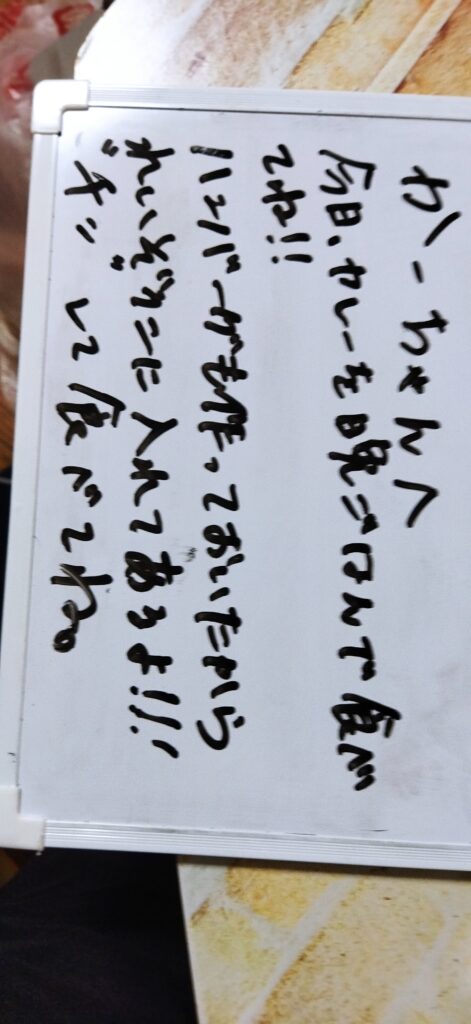 かーちゃんへ
今日、カレーを晩ごはんで食べ
てね!!
ハンバーグも作っておいたから
れいぞうこに入れてあるよ!!!
チンして食べてね。